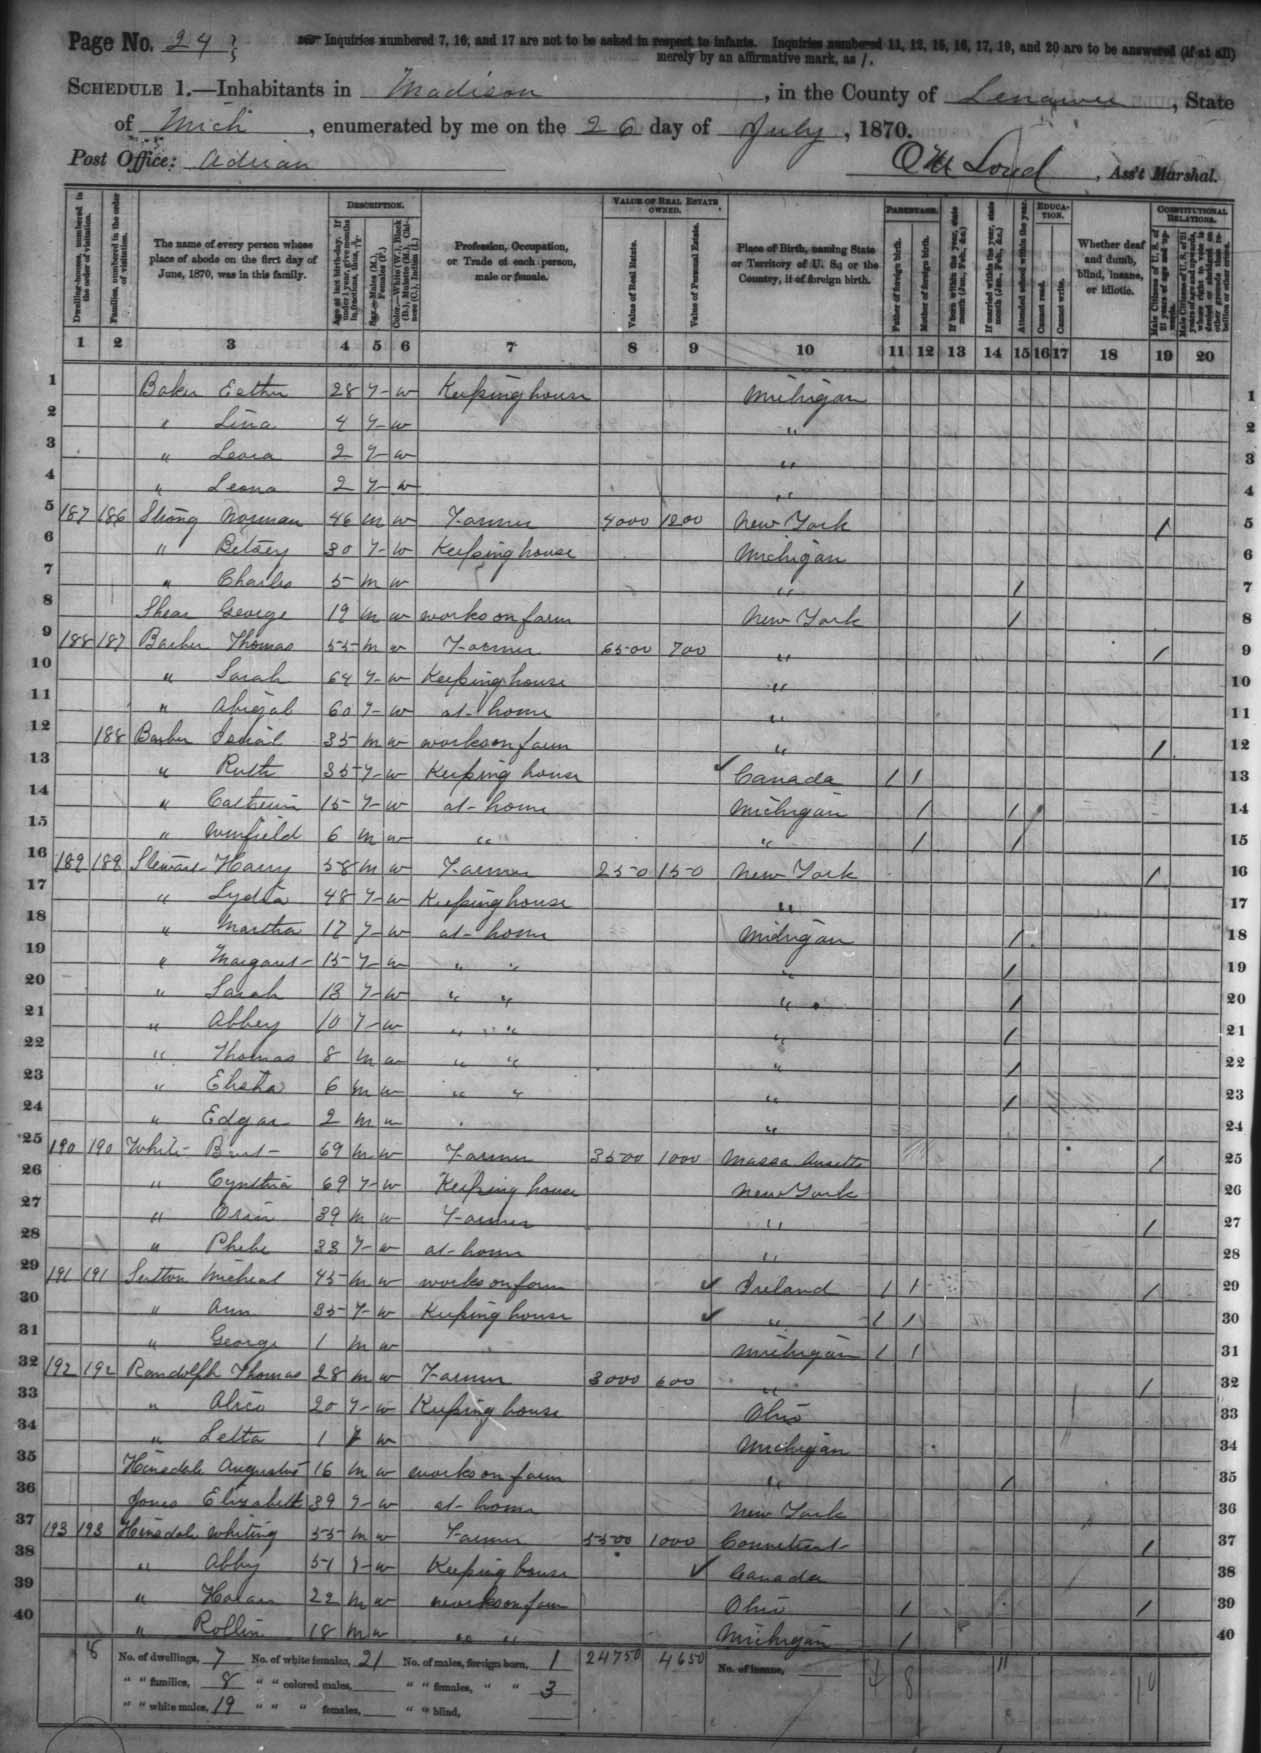 Page No. 24
Inquiries numbered 7, 16, and 17 are not to be asked in respect to infants. Inquiries numbered 11, 12, 15, 16, 17, 19, and 20 are to be answered (if at all)
merely by an affirmative mark, as /.
SCHEDULE 1.—Inhabitants in Madison, in the County of Lenawee, State
of Mich, enumerated by me on the 26 day of July, 1870.
Post Office: Adrian
Loud, Ass't Marshal.
Dwelling-houses, numbered in the order of visitation.
Families, numbered in the order of visitation.
The name of every person whose place of abode on the first day of June, 1870, was in this family.
DESCRIPTION.
Age at last birth-day. If under 1 year, give months in fractions, thus,
Sex.—Males (M.), Females (F.)
Color.—White (W.), Black (B.), Mulatto (M.), Chinese (C.), Indian (I.)
Profession, Occupation, or Trade of each person, male or female.
VALUE OF REAL ESTATE OWNED.
Value of Real Estate.
Value of Personal Estate.
Place of Birth, naming State or Territory of U. S.; or the Country, if of foreign birth.
PARENTAGE.
Father of foreign birth.
Mother of foreign birth.
If born within the year, state month (Jan., Feb., &c.)
If married within the year, state month (Jan., Feb., &c.)
EDUCATION.
Attended school within the year.
Cannot read.
Cannot write.
Whether deaf and dumb, blind, insane, or idiotic.
CONSTITUTIONAL RELATIONS.
Male Citizens of U. S. of 21 years of age and upwards.
1 2 3 4 5 6 7 8 9 10 11 12 13 14 15 16 17 18 19 20
1 Baker Esther 28 F W Keeping house Michigan 1
2 " Lina 4 F W " 2
3 " Leora 2 F W " 3
4 " Leona 2 F W " 4
5 187 186 Strong Norman 46 M W Farmer 4000 1200 New York / 5
6 " Betsey 30 F W Keeping house Michigan 6
7 " Charles 5 M W " / 7
8 Shear George 19 M W works on farm New York / 8
9 188 187 Barber Thomas 55 M W Farmer 6500 700 " / 9
10 " Sarah 64 F W Keeping house " 10
11 " Abigal 60 F W at home " 11
12 188 Barber 35 M W works on farm " / 12
13 " Ruth 35 F W Keeping house ✓ Canada / / 13
14 " 15 F W at home Michigan / / 14
15 " Winfield 6 M W " " / / 15
16 189 189 Stewart Harry 58 M W Farmer 250 150 New York / 16
17 " Lydia 48 F W Keeping house " 17
18 " Martha 17 F W at home Michigan / 18
19 " Margaret 15 F W " " " / 19
20 " Sarah 13 F W " " " / 20
21 " Abbey 10 F W " " " / 21
22 " Thomas 8 M W " " " / 22
23 " Elisha 6 M W " " " / 23
24 " Edgar 2 M W " 24
25 190 190 White 69 M W Farmer 3500 1000 / 25
26 " Cynthia 69 F W Keeping house New York 26
27 " Orin 39 M W Farmer " / 27
28 " Phebe 33 F W at home " 28
29 191 191 Sutton Micheal 45 M W works on farm ✓ Ireland / / / 29
30 " Ann 35 F W Keeping house ✓ " / / 30
31 " George 1 M W Michigan / / 31
32 192 192 Randolph Thomas 28 M W Farmer 3000 600 " / 32
33 " Alice 20 F W Keeping house Ohio 33
34 " Letta 1 F W Michigan 34
35 Hinsdale Augustus 16 M W works on farm " / 35
36 Jones Elizabeth 39 F W at home New York 36
37 193 193 Hinsdale Whiting 55 M W Farmer 5500 1000 / 37
38 " Abby 51 F W Keeping house ✓ Canada 38
39 " 22 M W works on farm Ohio / / 39
40 " Rollin 18 M W " " Michigan / 40
No. of dwellings, 7 No. of white females, 21 No. of males, foreign born, 1 24750 4650 No. of insane, 8 11 10
" " families, 8 " " colored males, " " females, " " 3
" " white males, 19 " " " females, " " blind,